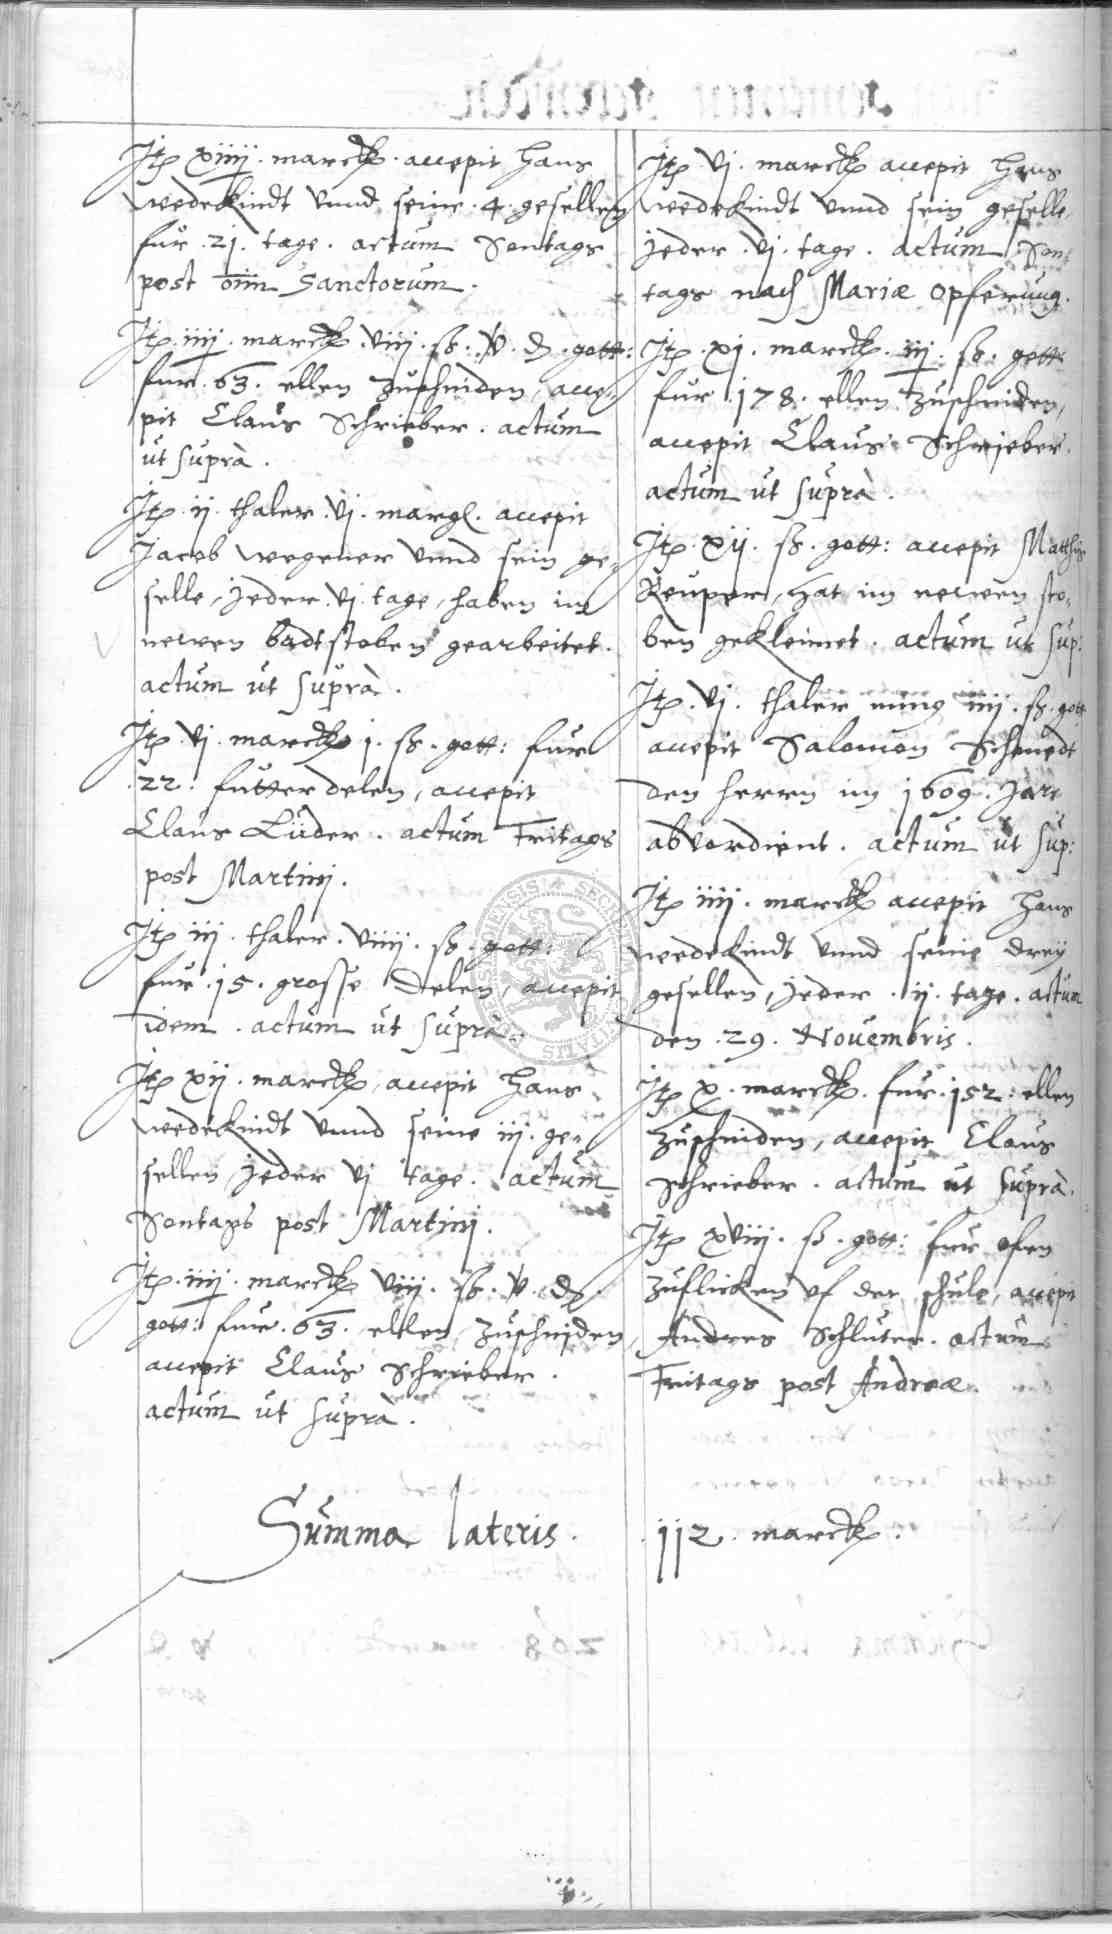 Itē xiiij . marck . accepit Hans
Wedekindt vnnd seine . 4 . gesellen
fur . 21 . tage . actum Sontags
post oīm Sanctorum .
Itē . iiij . marck . viij . ß . v . ₰ . gott:
fur . 63 . ellen zuschniden, acce-
pit Claus Schrieber . actum
ut suprà .
Itē . ij . thaler . vj . margl. accepit
Jacob Wegener vnnd sein ge-
selle, Jeder . vj . tage, haben im
newen badtstoben gearbeitet .
actum ut suprà .
Itē . vj . marck j . ß . gott: fur
. 22 . futterdelen, accepit
Claus Lüder . actum Fritags
post Martinj .
Itē iij . thaler . viiij . ß . gott:
fur . 15 . grosse Delen, accepit
idem . actum ut suprà .
Itē xij . marck, accepit Hans
Wedekindt vnnd seine iij . ge-
sellen Jeder vj tage . actum
Sontags post Martinj .
Itē . iiij . marck viij . ß . v . ₰ .
gott: fur . 63 . ellen zuschniden,
accepit Claus Schrieber .
actum ut suprà .
Itē . vj . marck accepit Hans
Wedekindt vnnd sein geselle,
Jeder . vj . tage . actum Son-
tags nach Mariæ Opferung .
Itē . xj . marck . iij . ß . gott:
fur . 178 . ellen zuschniden,
accepit Claus Schrieber .
actum ut suprà .
Itē . xij . ß . gott: accepit Matthis
Reuper, hat im newen sto-
ben gekleimet . actum ut sup:
Itē . vj . thaler iiij . ß . gott
accepit Salomon Schmedt
den herrn im 1609 . Jare
abverdient . actum ut sup:
Itē iiij . marck accepit Hans
Wedekindt vnnd seine drey
gesellen, Jeder . ij . tage . actum
den . 29 . Nouembris .
Itē x . marck . fur . 152 : ellen
zuschniden, accepit Claus
Schrieber . actum ut suprà .
Itē xviij . ß . gott: fur ofen
zuflicken vf der schule, accepit
Andres Schluter . actum
Fritags post Andreæ .
Summa lateris . 112 . marck .